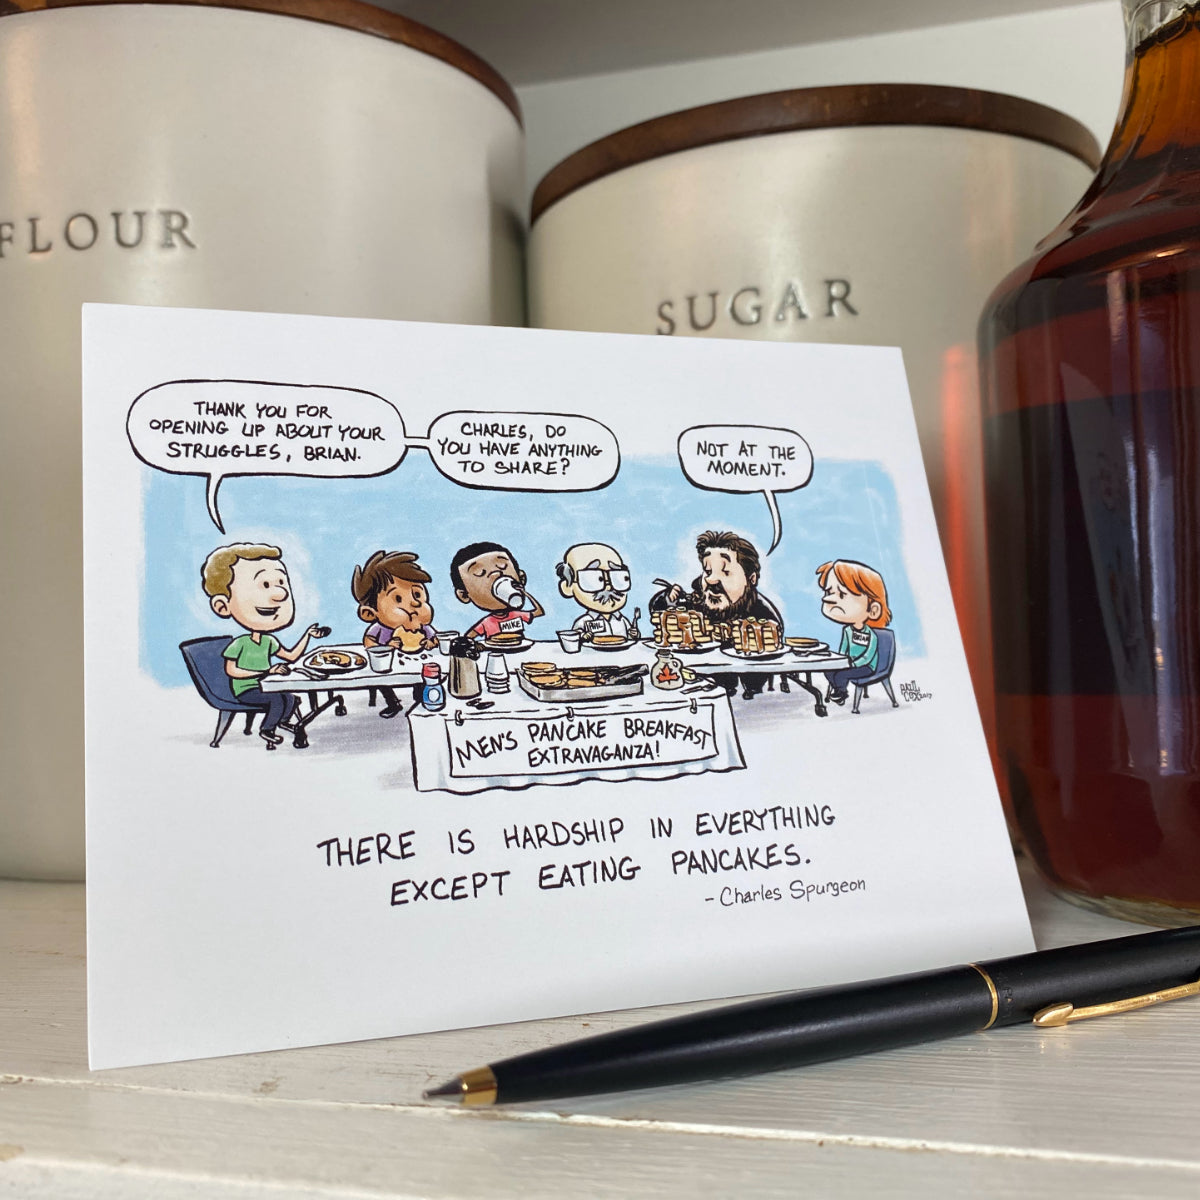 FLOUR
SUGAR
THANK YOU FOR
OPENING UP ABOUT YOUR
STRUGGLES, BRIAN.
CHARLES, DO
YOU HAVE ANYTHING
TO SHARE?
NOT AT THE
MOMENT.
MIKE
PHIL
BRIAN
MEN'S PANCAKE BREAKFAST
EXTRAVAGANZA!
THERE IS HARDSHIP IN EVERYTHING
EXCEPT EATING PANCAKES.
- Charles Spurgeon